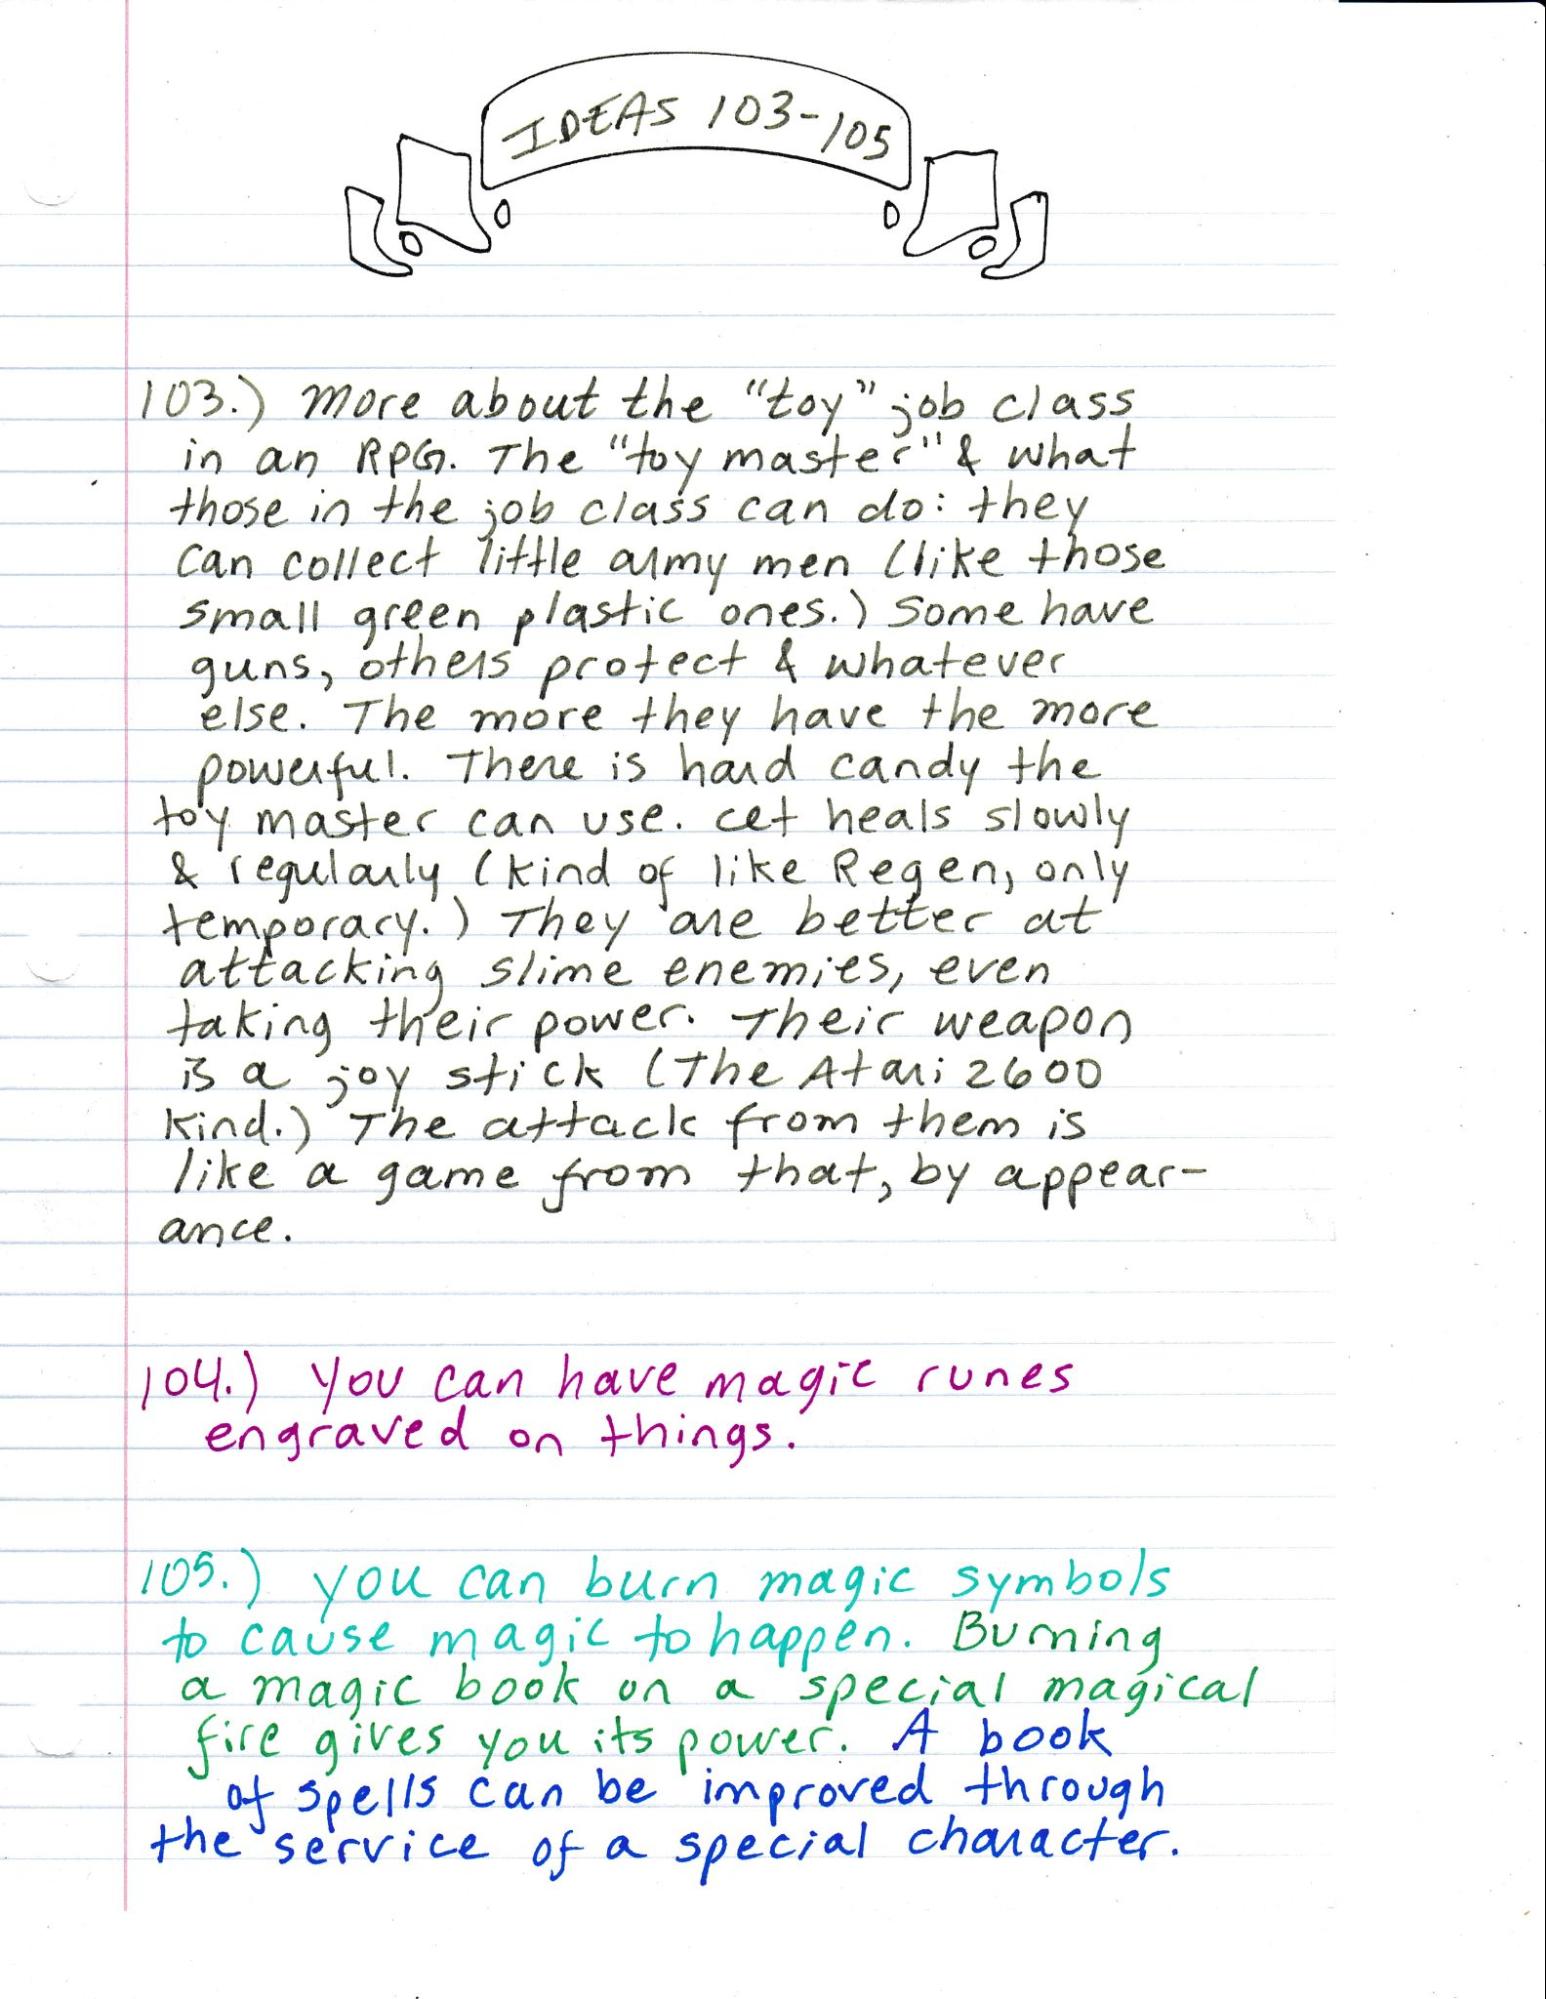 IDEAS 103-105
103.) More about the "toy" job class
in an RPG. The "toy master" & what
those in the job class can do: they
can collect little army men (like those
small green plastic ones.) Some have
guns, others protect & whatever
else. The more they have the more
powerful. There is hard candy the
toy master can use. cet heals slowly
& regularly (kind of like Regen, only
temporary.) They are better at
attacking slime enemies, even
taking their power. Their weapon
is a joy stick (The Atari 2600
kind.) The attack from them is
like a game from that, by appear-
ance.
104.) You can have magic runes
engraved on things.
105.) You can burn magic symbols
to cause magic to happen. Burning
a magic book on a special magical
fire gives you its power. A book
of spells can be improved through
the service of a special character.